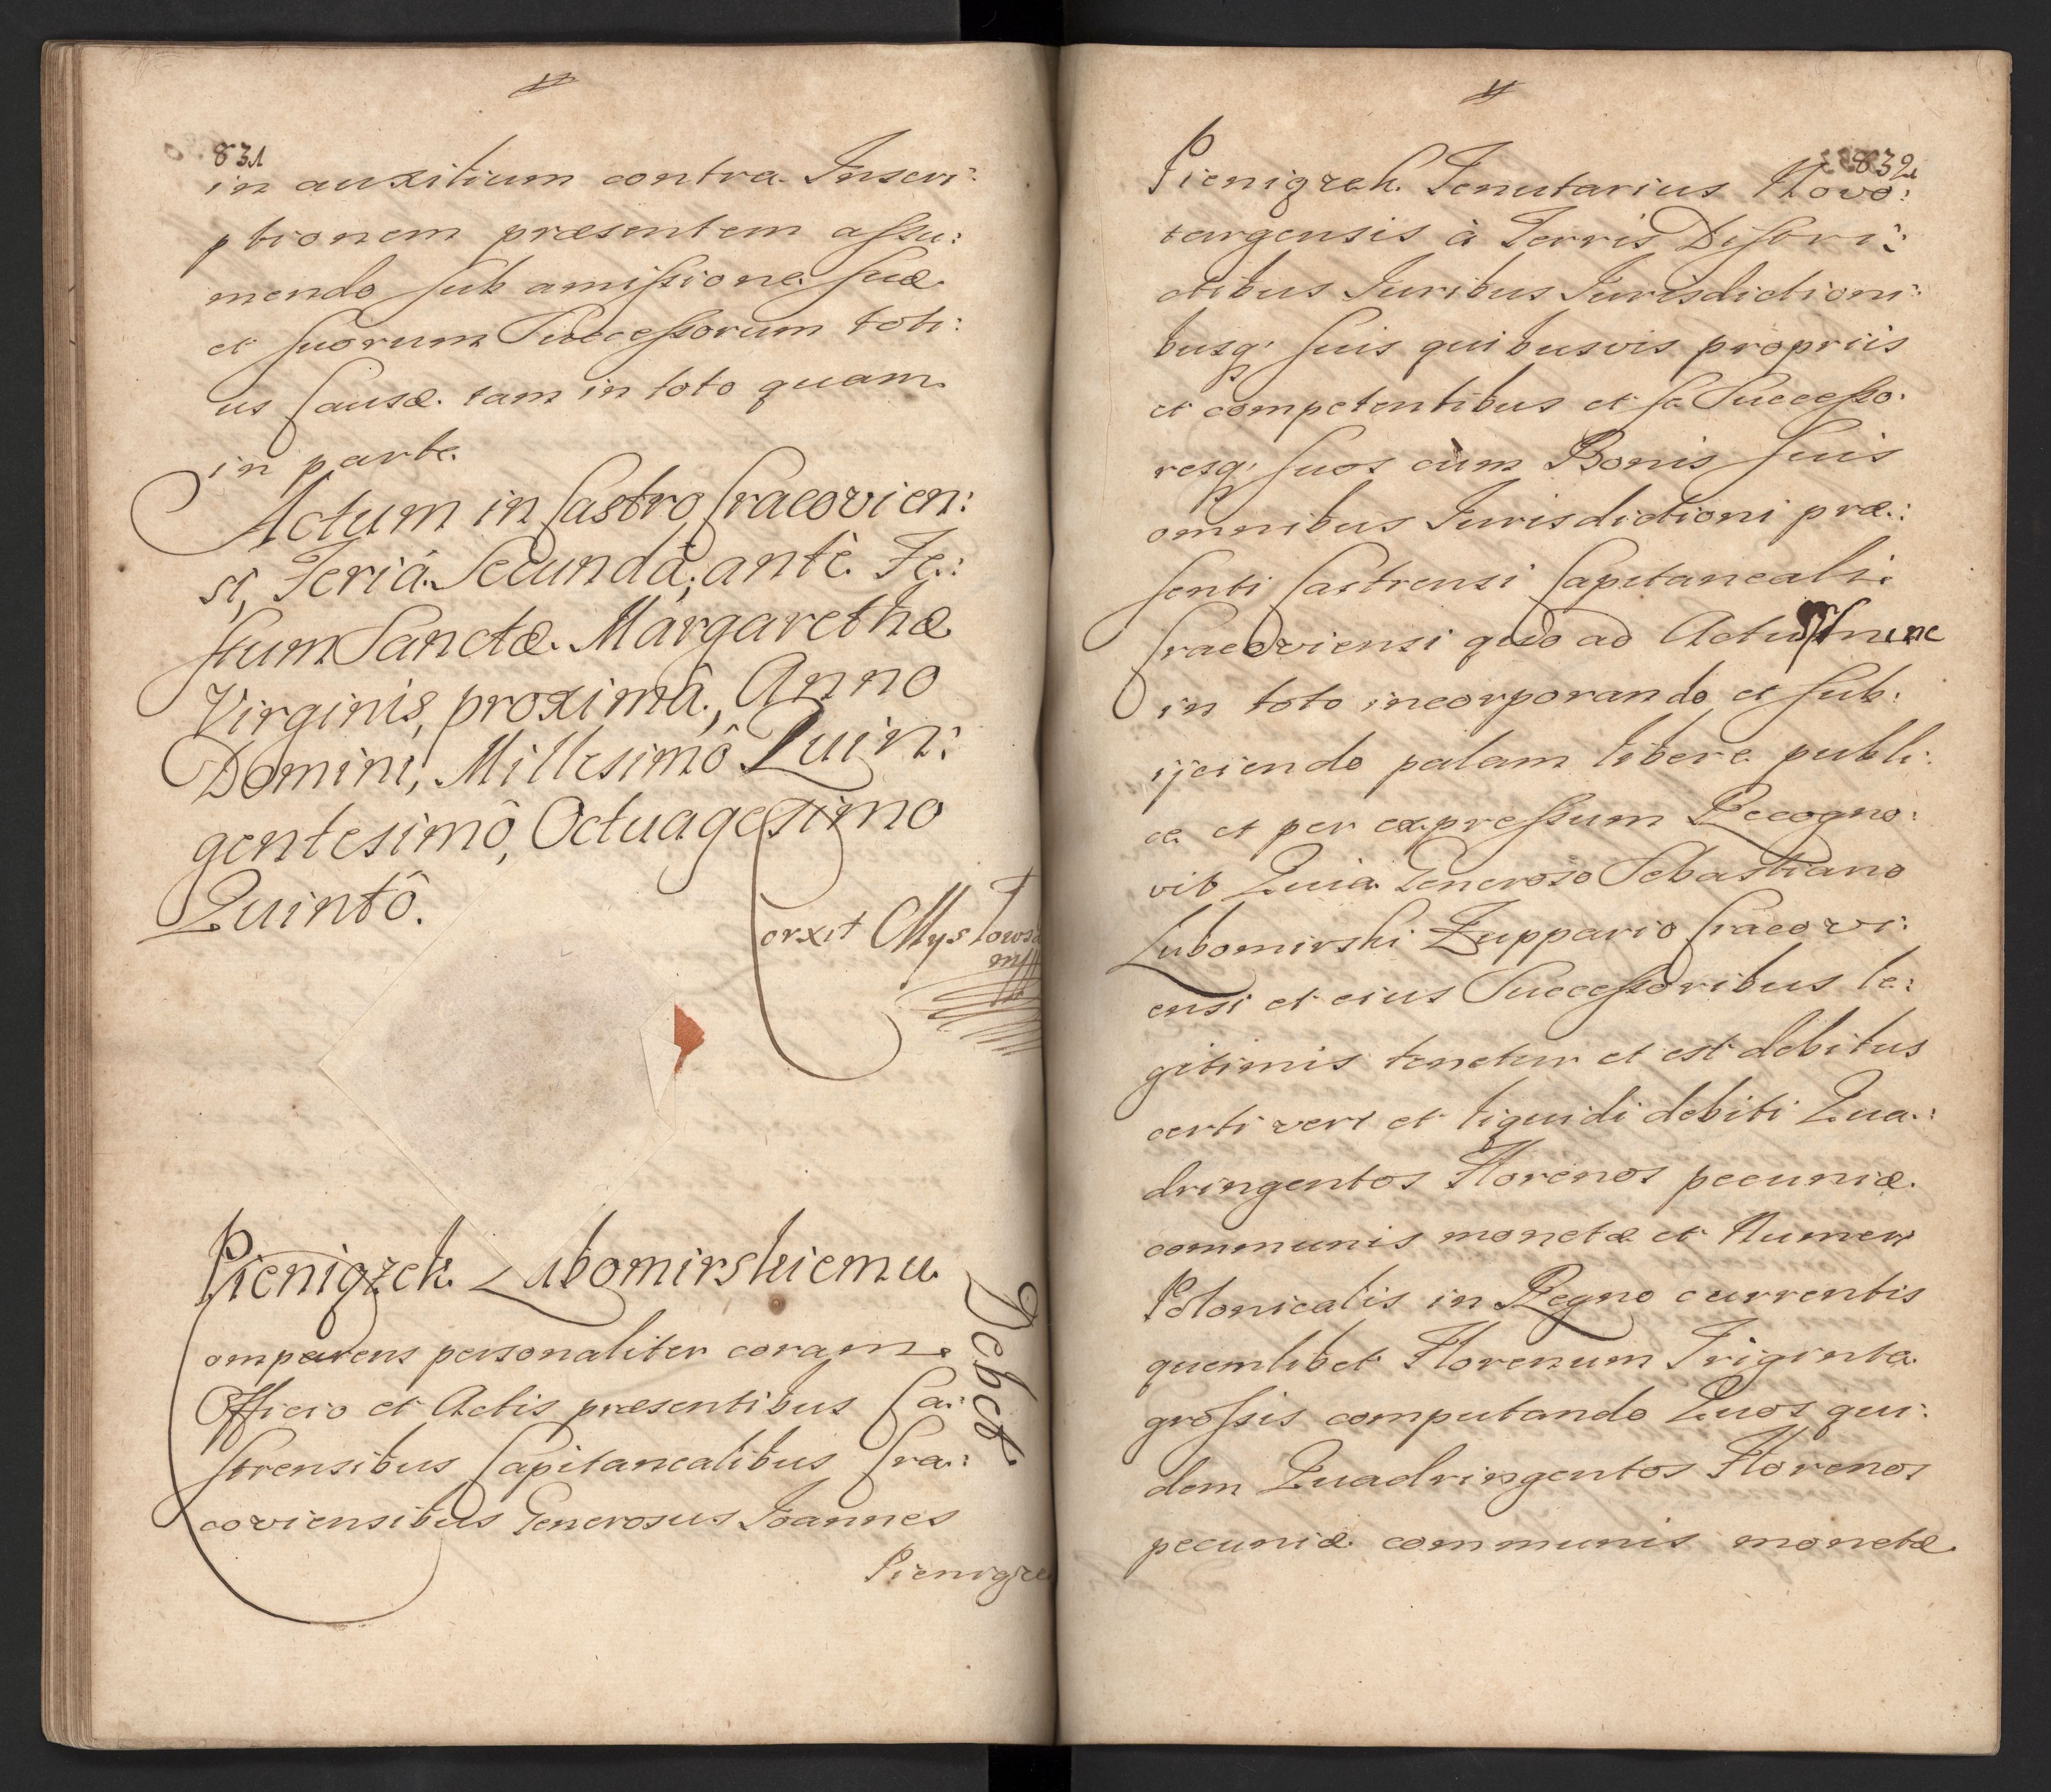 831
in auxilium contra Inscri:
ptionem præsentem assu:
mendo sub amissione suæ
et suorum Successorum toti:
us Causæ tam in toto quam
in parte.
Actum in Castro Cracovien:
si, Feriá Secundâ, antè Fe:
stum Sanctæ Margarethæ
Virginis, proximâ, Anno
Domini, Millesimô Quin:
gentesimô, Octuagesimo
Quintô.
Corxit Mysłows
mp
Pieniążek Lubomirskiemu
Debet
Comparens personaliter coram
Officio et Actis præsentibus Ca:
strensibus Capitanealibus Cra:
coviensibus Generosus Joannes
Pieniąże
832
Pieniążek Tenutarius Novo:
targensis à Terris Distri:
ctibus Juribus Jurisdictioni:
busq, suis quibusvis propriis
et competentibus et se Successo:
resq, suos cùm Bonis suis
omnibus Jurisdictioni præ:
senti Castrensi Capitaneali
Cracoviensi quo ad Actum hunc
in toto incorporando et sub:
ijciendo palam libere publi:
ce et per expressum Recogno:
vit Quia Generoso Sebastiano
Lubomirski Zuppario Cracovi:
ensi et eius Successoribus le:
gitimis tenetur et est debitus
certi veri et liquidi debiti Qua:
dringentos Florenos pecuniæ
communis monetæ et Numeri
Polonicalis in Regno currentis
quemlibet Florenum Triginta
grossis computando Quos qui:
dem Quadringentos Florenos
pecuniæ communis monetæ